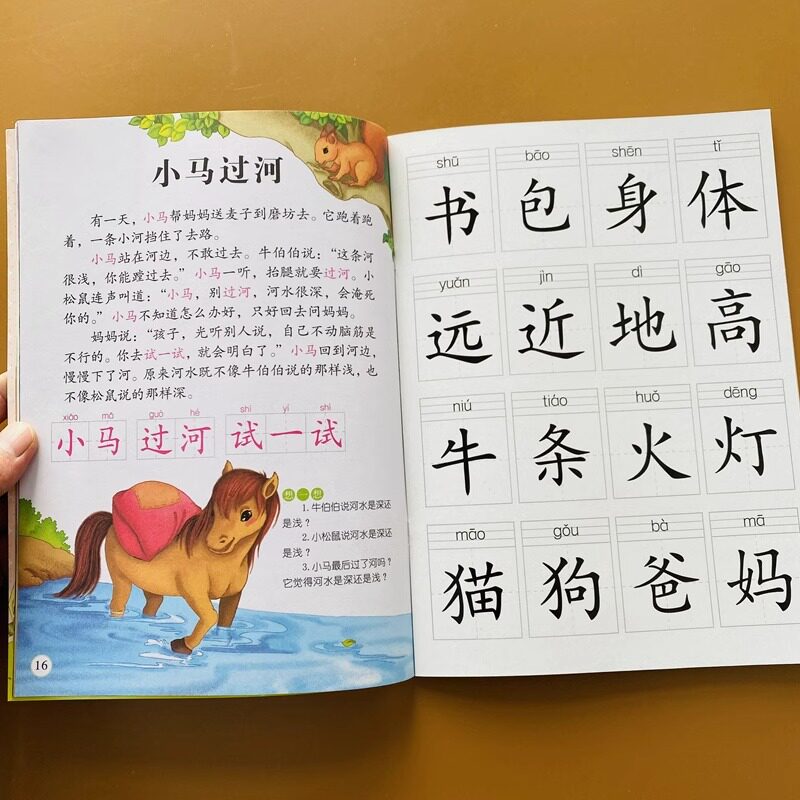 小马过河
有一天，小马帮妈妈送麦子到磨坊去。它跑着跑
着，一条小河挡住了去路。
小马站在河边，不敢过去。牛伯伯说：“这条河
很浅，你能蹚过去。”小马一听，抬腿就要过河。小
松鼠连声叫道：“小马，别过河，河水很深，会淹死
你的。”小马不知道怎么办好，只好回去问妈妈。
妈妈说：“孩子，光听别人说，自己不动脑筋是
不行的。你去试一试，就会明白了。”小马回到河边，
慢慢下了河。原来河水既不像牛伯伯说的那样浅，也
不像松鼠说的那样深。
xiǎo mǎ guò hé shì yí shì
小马 过河 试一试
想一想
1.牛伯伯说河水是深还
是浅？
2.小松鼠说河水是深还
是浅？
3.小马最后过了河吗？
它觉得河水是深还是浅？
16
shū bāo shēn tǐ
书 包 身 体
yuǎn jìn dì gāo
远 近 地 高
niú tiáo huǒ dēng
牛 条 火 灯
māo gǒu bà mā
猫 狗 爸 妈